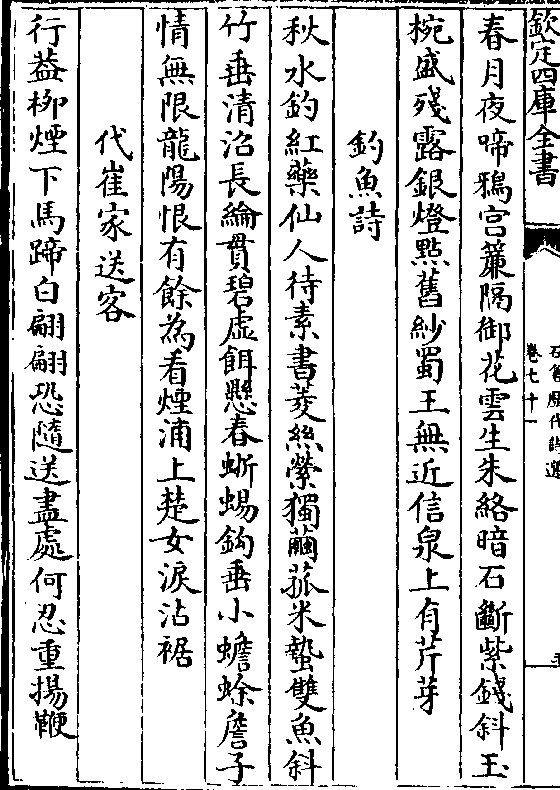 欽定四庫全書
石倉歷代詩選
卷七十一
春月夜啼鴉宮簾隔御花雲生朱絡暗石斷紫錢斜玉
椀盛殘露銀燈點舊紗蜀王無近信泉上有芹芽
釣魚詩
秋水釣紅藥仙人待素書菱絲縈獨繭菰米蟄雙魚斜
竹垂清沼長綸貫碧虛餌懸春蜥蜴鈎垂小蟾蜍詹子
情無限龍陽恨有餘為看煙浦上楚女淚沾裾
代崔家送客
行葢柳煙下馬蹄白翩翩恐隨送盡處何忍重揚鞭